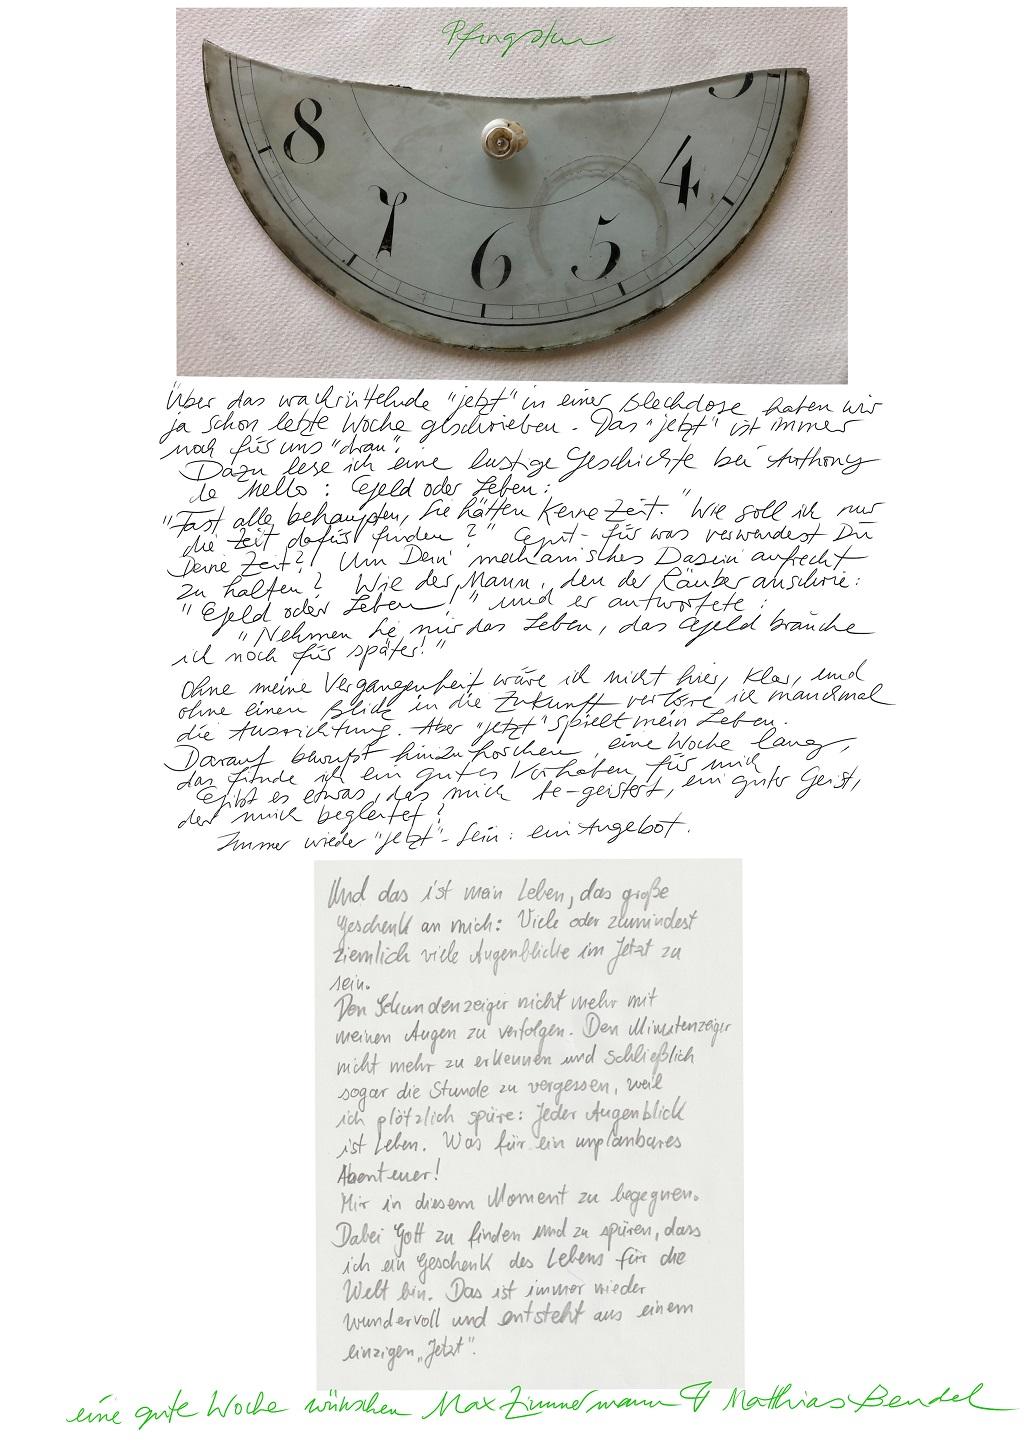 Pfingsten
8 7 6 5 4 3
Über das wachrüttelnde "jetzt" in einer Blechdose haben wir
ja schon letzte Woche geschrieben. Das "jetzt" ist immer
noch für uns "dran".
Dazu lese ich eine lustige Geschichte bei Anthony
de Mello: Geld oder Leben:
"Fast alle behaupten, sie hätten keine Zeit. "Wie soll ich nur
die Zeit dafür finden?" Gut - für was verwendest Du
Deine Zeit? Um Dein mechanisches Dasein aufrecht
zu halten? Wie der Mann, den der Räuber anschrie:
"Geld oder Leben!" und er antwortete:
"Nehmen Sie mir das Leben, das Geld brauche
ich noch für später!"
Ohne meine Vergangenheit wäre ich nicht hier, klar, und
ohne einen Blick in die Zukunft verlöre ich manchmal
die Ausrichtung. Aber "jetzt" spielt mein Leben.
Darauf bewusst hinzuhorchen, eine Woche lang,
das finde ich ein gutes Vorhaben für mich
Gibt es etwas, das mich be-geistert, ein guter Geist,
der mich begleitet?
Immer wieder "jetzt"-Sein: ein Angebot.
Und das ist mein Leben, das große
Geschenk an mich: Viele oder zumindest
ziemlich viele Augenblicke im Jetzt zu
sein.
Den Sekundenzeiger nicht mehr mit
meinen Augen zu verfolgen. Den Minutenzeiger
nicht mehr zu erkennen und schließlich
sogar die Stunde zu vergessen, weil
ich plötzlich spüre: Jeder Augenblick
ist Leben. Was für ein unplanbares
Abenteuer!
Mir in diesem Moment zu begegnen.
Dabei Gott zu finden und zu spüren, dass
ich ein Geschenk des Lebens für die
Welt bin. Das ist immer wieder
wundervoll und entsteht aus einem
einzigen „Jetzt".
eine gute Woche wünschen Max Zimmermann & Matthias Bendel